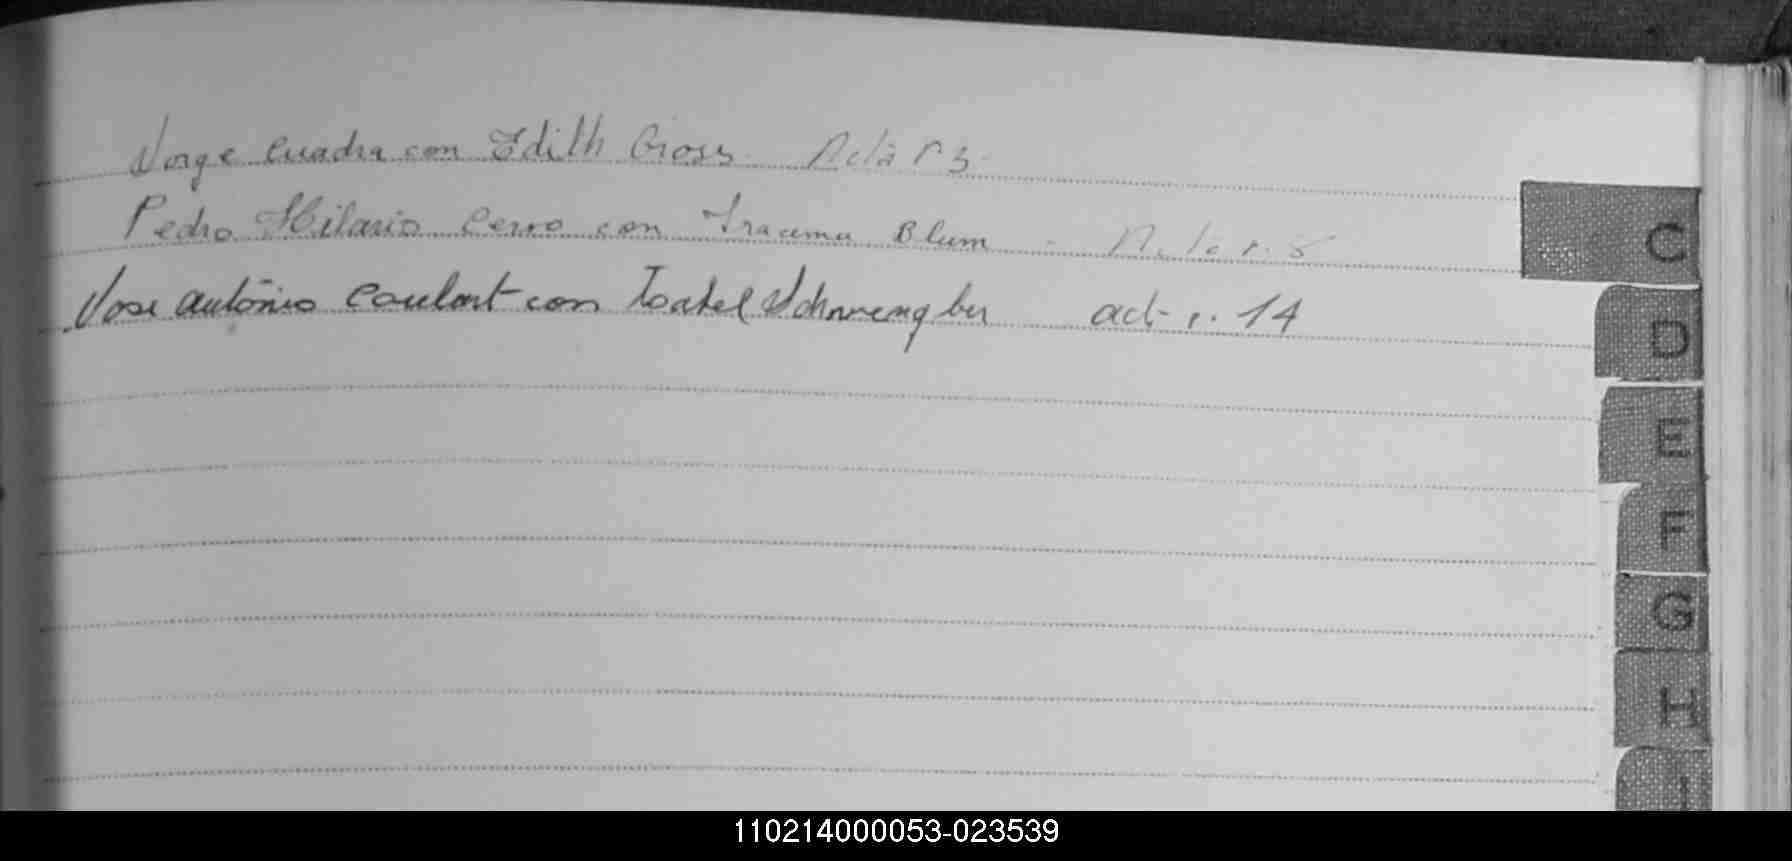 Jorge Cuadra con Edith Gross. Acta n 3.
Pedro Hilario Cerro con Iracema Blum - Acta n. 8
Jose Antônio Coulart con Isabel Schwengber act n. 14
C
D
E
F
G
H
I
110214000053-023539